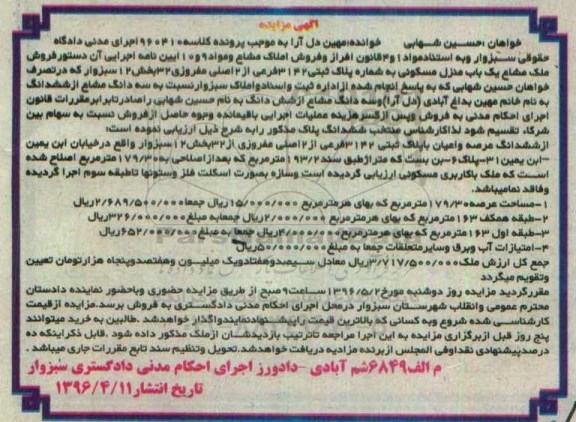 آگهی مزایده
خواهان :حسین شهابی خوانده:مهین دل آرا به موجب پرونده کلاسه۹۶۰۴۱۰اجرای مدنی دادگاه
حقوقی سبزوار وبه استنادمواد۱و۴قانون افراز وفروش املاک مشاع ومواد۹و۱۰آیین نامه اجرایی آن دستورفروش
ملک مشاع یک باب منزل مسکونی به شماره پلاک ثبتی۳۱۴۲فرعی از۲اصلی مفروزی۳۲بخش۱۲سبزوار که درتصرف
خواهان حسین شهابی که به پاسخ انجام شده ازاداره ثبت واسنادواملاک سبزوارنسبت به سه دانگ مشاع ازششدانگ
به نام خانم مهین بداغ آبادی (دل آرا)وسه دانگ مشاع ازشش دانگ به نام حسین شهابی راصادرتابرابرمقررات قانون
اجرای احکام مدنی به فروش وپس ازکسرهزینه عملیات اجرایی باقیمانده وجوه حاصل ازفروش نسبت به سهام بین
شرکاء تقسیم شود لذاکارشناس منتخب ششدانگ پلاک مذکور رابه شرح ذیل ارزیابی نموده است:
ازششدانگ عرصه واعیان باپلاک ثبتی ۳۱۴۲فرعی از۲اصلی مفروزی از۳۲بخش۱۲سبزوار واقع درخیابان ابن یمین
-ابن یمین۳۱-پلاک۶-بن بست که متراژطبق سند۱۹۳/۲مترمربع که بعدازاصلاحی به۱۷۹/۳۰مترمربع اصلاح شده
است که ملک باکاربری مسکونی ارزیابی گردیده است وسازه بصورت اسکلت فلز وستونها تاطبقه سوم اجرا گردیده
وفاقد نمامیباشد.
۱-مساحت عرصه۱۷۹/۳۰مترمربع که بهای هرمترمربع ۱۵/۰۰۰/۰۰۰ریال جمعا۲/۶۸۹/۵۰۰/۰۰۰ریال
۲-طبقه همکف ۱۶۳مترمربع که بهای هرمترمربع ۲/۰۰۰/۰۰۰ریال جمعابه مبلغ۳۲۶/۰۰۰/۰۰۰ریال
۳-طبقه اول ۱۶۳مترمربع که بهای هرمترمربع۴/۰۰۰/۰۰۰ریال جمعا به مبلغ۶۵۲/۰۰۰/۰۰۰ریال
۴-امتیازات آب وبرق وسایرمتعلقات جمعا به مبلغ۵۰/۰۰۰/۰۰۰ریال
جمع کل ارزش ملک۳/۷۱۷/۵۰۰/۰۰۰ریال معادل سیصدوهفتادویک میلیون وهفتصدوپنجاه هزارتومان تعیین
وتقویم میگردد
مقررگردید مزایده روز دوشنبه مورخ۱۳۹۶/۵/۲ساعت۹صبح از طریق مزایده حضوری وباحضور نماینده دادستان
محترم عمومی وانقلاب شهرستان سبزوار درمحل اجرای احکام مدنی دادگستری به فروش برسد.مزایده ازقیمت
کارشناسی شده شروع وبه کسانی که بالاترین قیمت راپیشنهادنمایندواگذار خواهدشد .طالبین به خرید میتوانند
پنج روز قبل ازبرگزاری مزایده به این اجرا مراجعه تاترتیب بازدیدشان ازملک مذکور داده شود .قابل ذکراینکه ده
درصدپیشنهادی نقداوفی المجلس ازبرنده مزایده دریافت خواهدشد.تحویل وتنظیم سند تابع مقررات جاری میباشد .
م الف۶۸۴۹شم آبادی -دادورز اجرای احکام مدنی دادگستری سبزوار
تاریخ انتشار۱۳۹۶/۴/۱۱